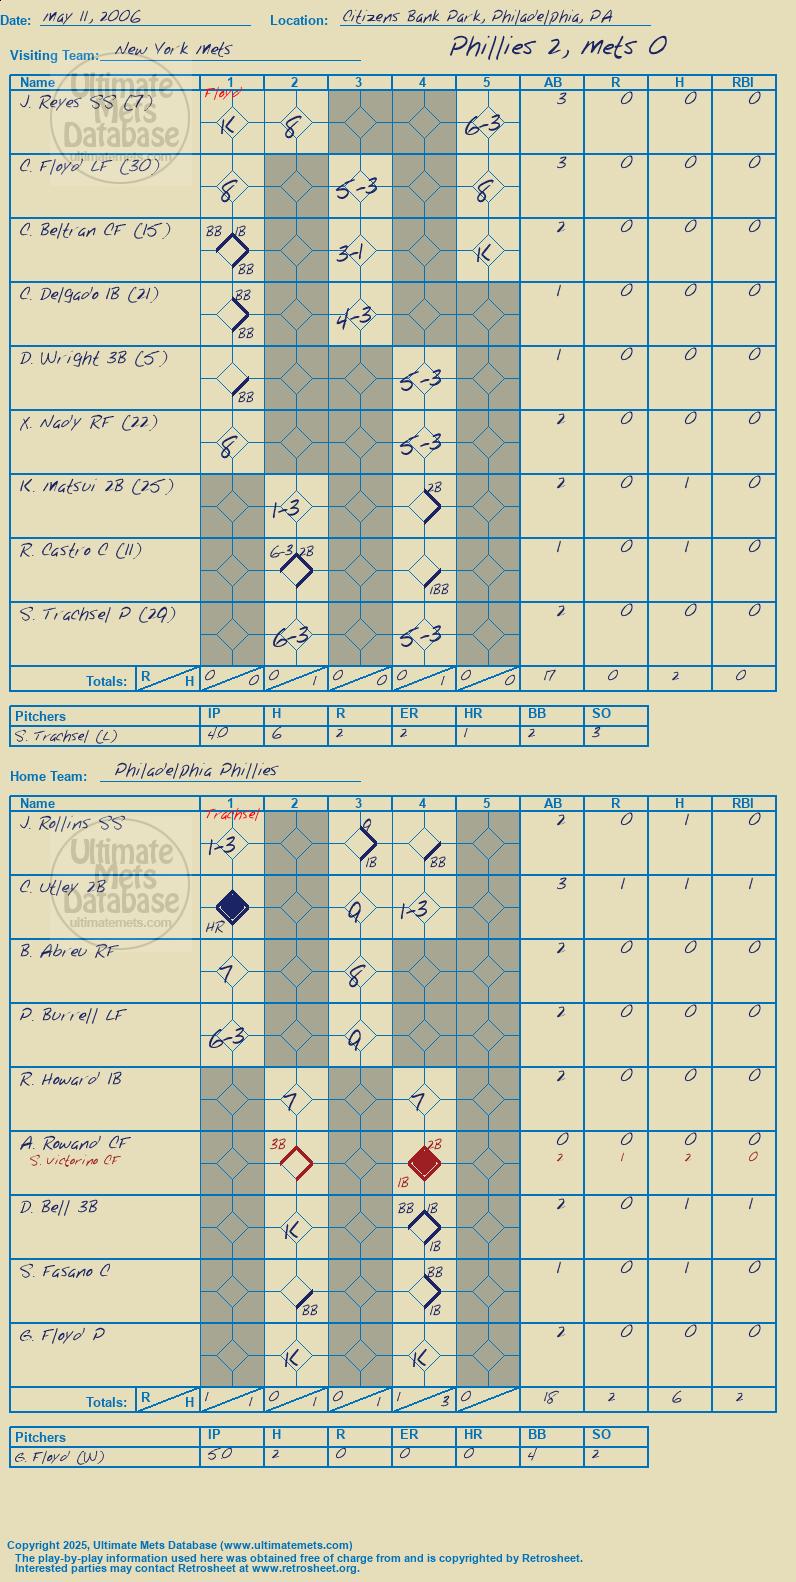 Date: May 11, 2006 Location: Citizens Bank Park, Philadelphia, PA
Visiting Team: New York Mets Phillies 2, Mets 0
Name 1 2 3 4 5 AB R H RBI
Floyd
J. Reyes SS (7) K 8 6-3 3 0 0 0
C. Floyd LF (30) 8 5-3 8 3 0 0 0
C. Beltran CF (15) BB 1B BB 3-1 K 2 0 0 0
C. Delgado 1B (21) BB BB 4-3 1 0 0 0
D. Wright 3B (5) BB 5-3 1 0 0 0
X. Nady RF (22) 8 5-3 2 0 0 0
K. Matsui 2B (25) 1-3 2B 2 0 1 0
R. Castro C (11) 6-3 2B IBB 1 0 1 0
S. Trachsel P (29) 6-3 5-3 2 0 0 0
Totals: R H 0 0 0 1 0 0 0 1 0 0 17 0 2 0
Pitchers IP H R ER HR BB SO
S. Trachsel (L) 40 6 2 2 1 2 3
Home Team: Philadelphia Phillies
Name 1 2 3 4 5 AB R H RBI
Trachsel
J. Rollins SS 1-3 9 1B BB 2 0 1 0
C. Utley 2B HR 9 1-3 3 1 1 1
B. Abreu RF 7 8 2 0 0 0
P. Burrell LF 6-3 9 2 0 0 0
R. Howard 1B 7 7 2 0 0 0
A. Rowand CF 0 0 0 0
S. Victorino CF 3B 2B 1B 2 1 2 0
D. Bell 3B K BB 1B 1B 2 0 1 1
S. Fasano C BB BB 1B 1 0 1 0
G. Floyd P K K 2 0 0 0
Totals: R H 1 1 0 1 0 1 1 3 0 18 2 6 2
Pitchers IP H R ER HR BB SO
G. Floyd (W) 50 2 0 0 0 4 2
Ultimate
Mets
Database
ultimatemets.com
Ultimate
Mets
Database
ultimatemets.com
Copyright 2025, Ultimate Mets Database (www.ultimatemets.com)
The play-by-play information used here was obtained free of charge from and is copyrighted by Retrosheet.
Interested parties may contact Retrosheet at www.retrosheet.org.